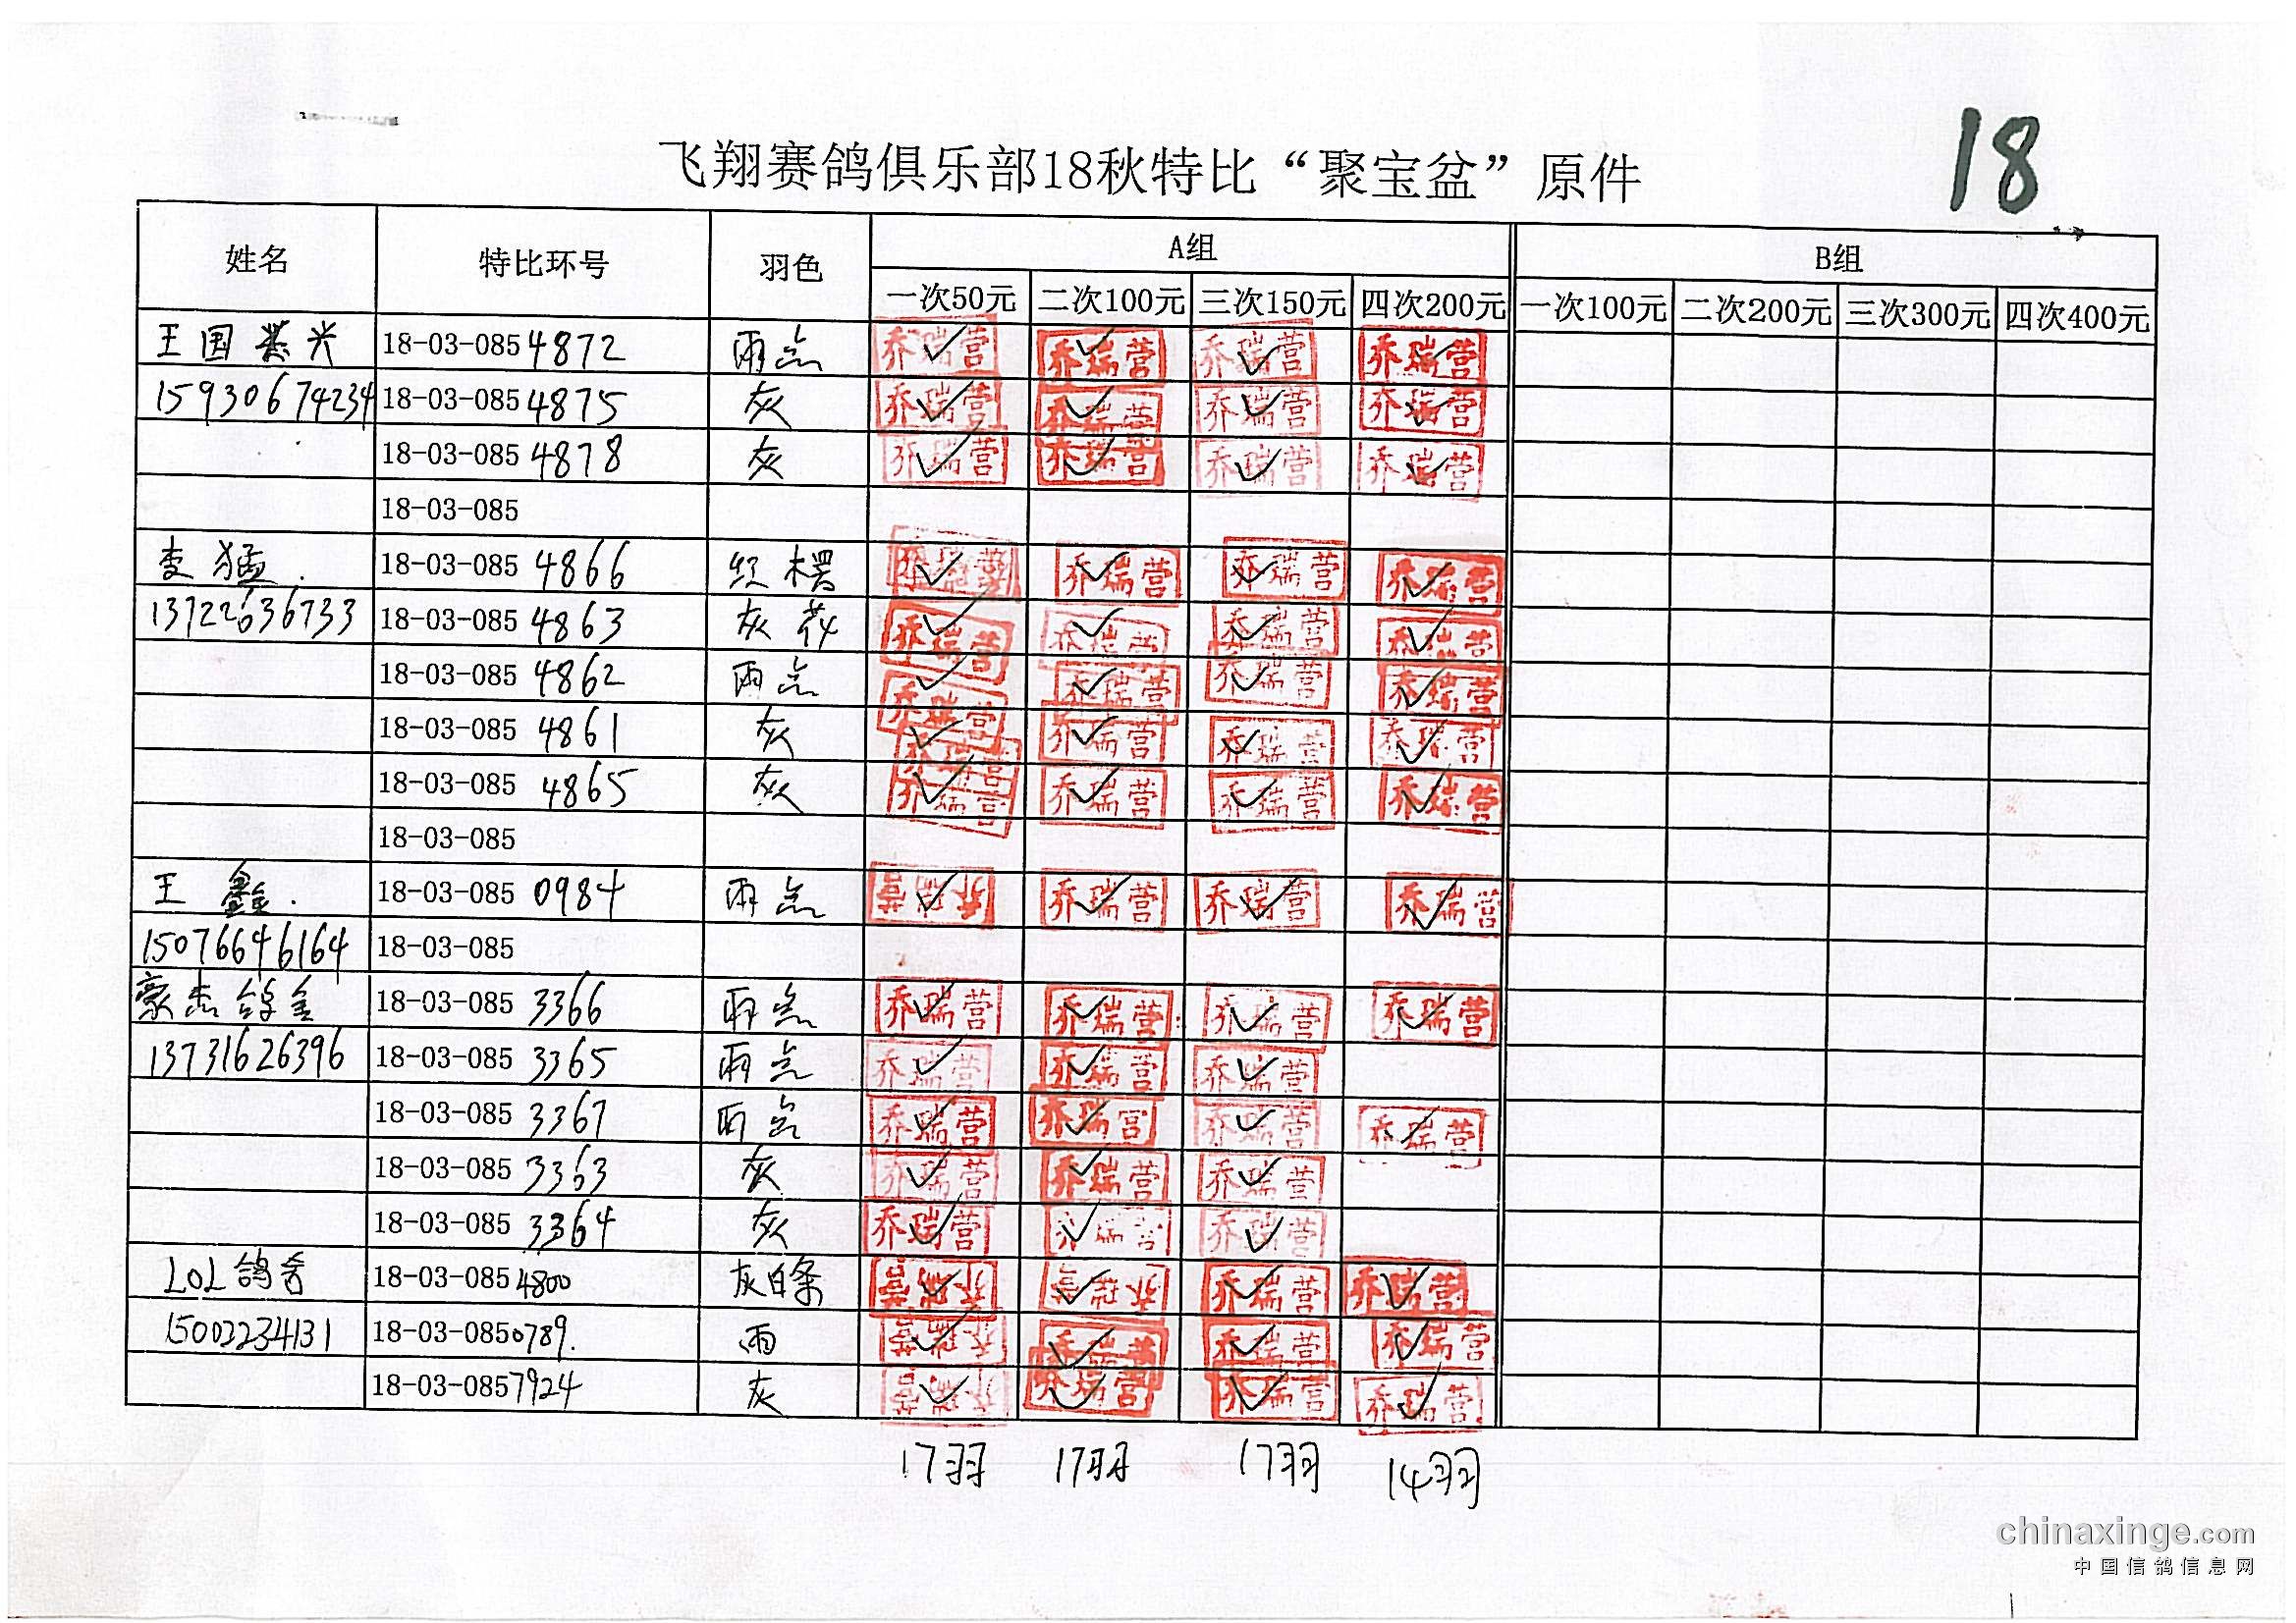 18
飞翔赛鸽俱乐部18秋特比“聚宝盆”原件
姓名 特比环号 羽色 A组 B组
一次50元 二次100元 三次150元 四次200元 一次100元 二次200元 三次300元 四次400元
王国 兴 18-03-085 4872 雨点 乔瑞营 乔瑞营 乔瑞营 乔瑞营
15930674234 18-03-085 4875 灰 乔瑞营 乔瑞营 乔瑞营 乔瑞营
18-03-085 4878 灰 乔瑞营 乔瑞营 乔瑞营 乔瑞营
18-03-085
李猛. 18-03-085 4866 红楞 乔瑞营 乔瑞营 乔瑞营 乔瑞营
13722636733 18-03-085 4863 灰花 乔瑞营 乔瑞营 乔瑞营 乔瑞营
18-03-085 4862 雨点 乔瑞营 乔瑞营 乔瑞营 乔瑞营
18-03-085 4861 灰 乔瑞营 乔瑞营 乔瑞营 乔瑞营
18-03-085 4865 灰 乔瑞营 乔瑞营 乔瑞营 乔瑞营
18-03-085
王鑫. 18-03-085 0984 雨点 乔瑞营 乔瑞营 乔瑞营 乔瑞营
15076646164 18-03-085
豪杰鸽舍 18-03-085 3366 雨点 乔瑞营 乔瑞营 乔瑞营 乔瑞营
13731626396 18-03-085 3365 雨点 乔瑞营 乔瑞营 乔瑞营
18-03-085 3367 雨点 乔瑞营 乔瑞营 乔瑞营 乔瑞营
18-03-085 3363 灰 乔瑞营 乔瑞营 乔瑞营
18-03-085 3364 灰 乔瑞营 乔瑞营 乔瑞营
LOL鸽舍 18-03-085 4800 灰白条 乔瑞营 乔瑞营 乔瑞营 乔瑞营
15002234131 18-03-085 0789. 雨 乔瑞营 乔瑞营 乔瑞营 乔瑞营
18-03-085 7924 灰 乔瑞营 乔瑞营 乔瑞营 乔瑞营
17羽 17羽 17羽 14羽
chinaxinge.com
中国信鸽信息网